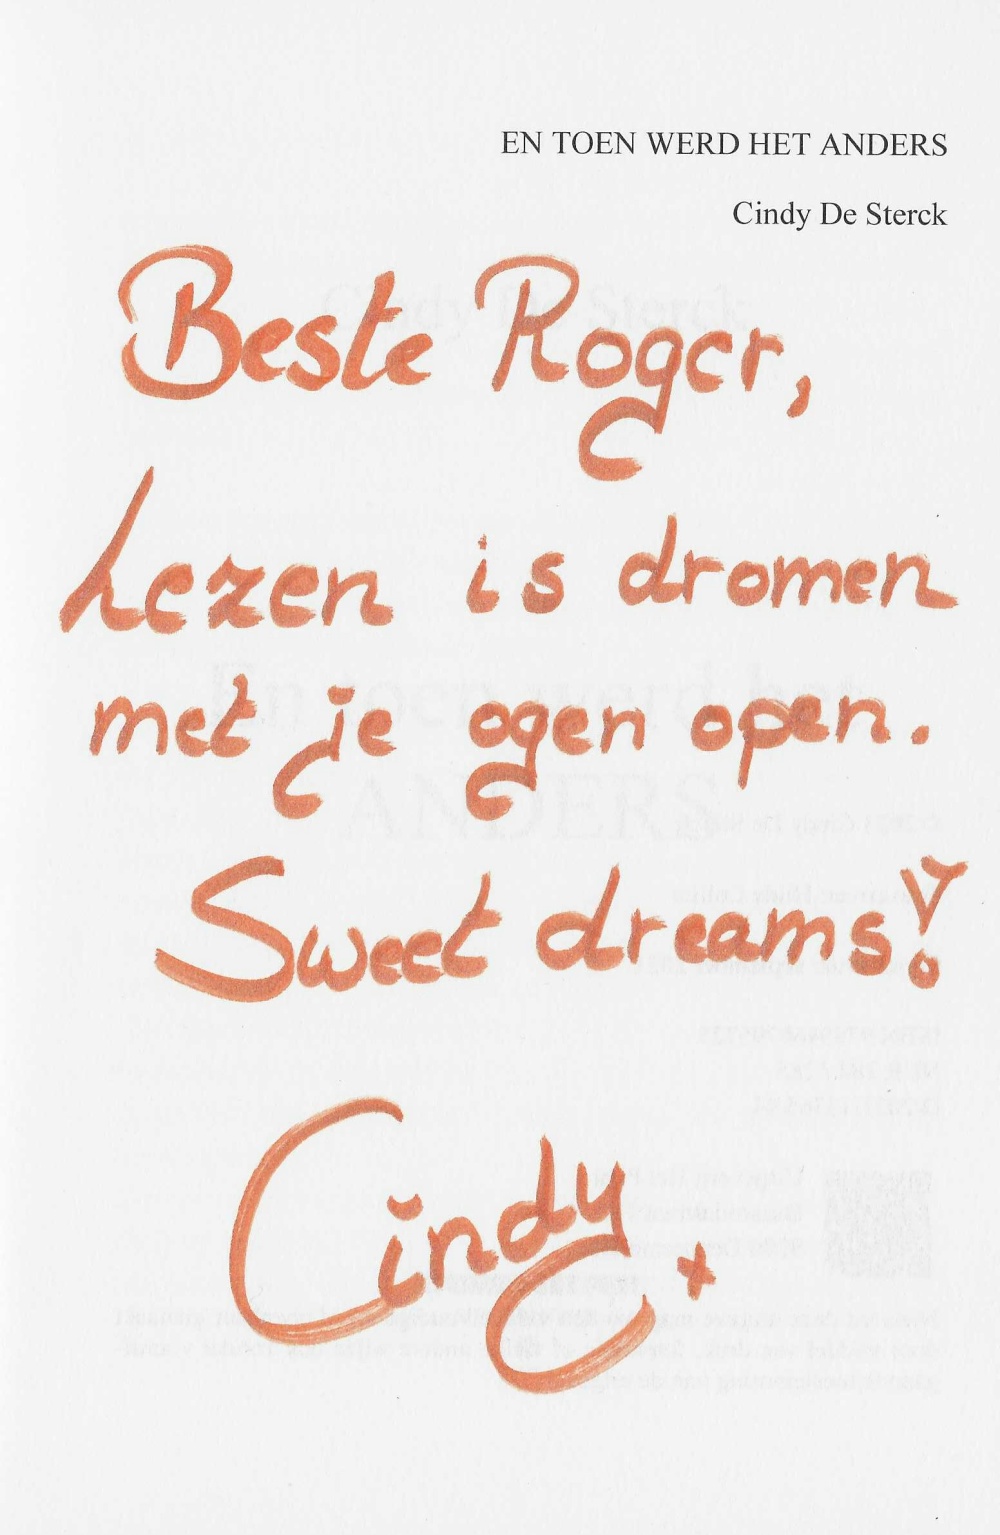 EN TOEN WERD HET ANDERS
Cindy De Sterck
Beste Roger,
Lezen is dromen
met je ogen open.
Sweet dreams!
Cindy
+